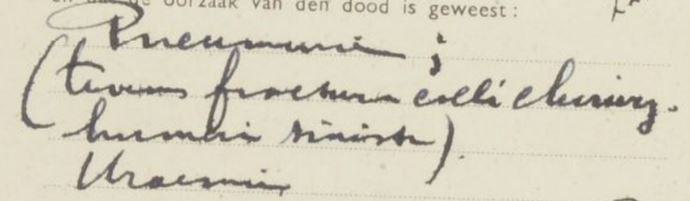 oorzaak van den dood is geweest :
Pneumonie ;
(tevens fractura colli chirurg.
humeri sinistr).
Uraemie